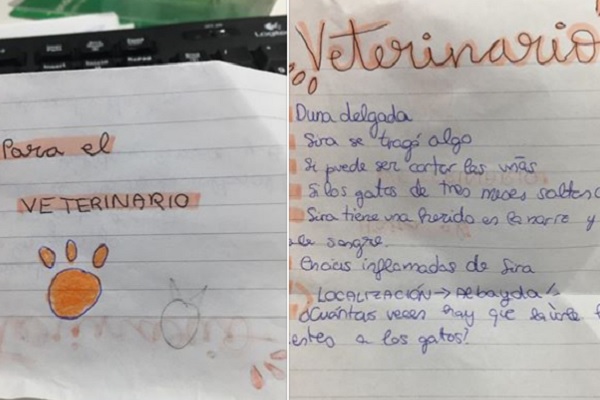 Para el
VETERINARIO
Veterinario
Duna delgada
Sira se tragó algo
Si puede ser cortar las uñas
Si los gatos de tres meses salten
Sira tiene una herida en la nariz y
sangre.
Encias inflamadas de Sira
LOCALIZACIÓN → Albayda
¿Cuántas veces hay que
a los gatos?